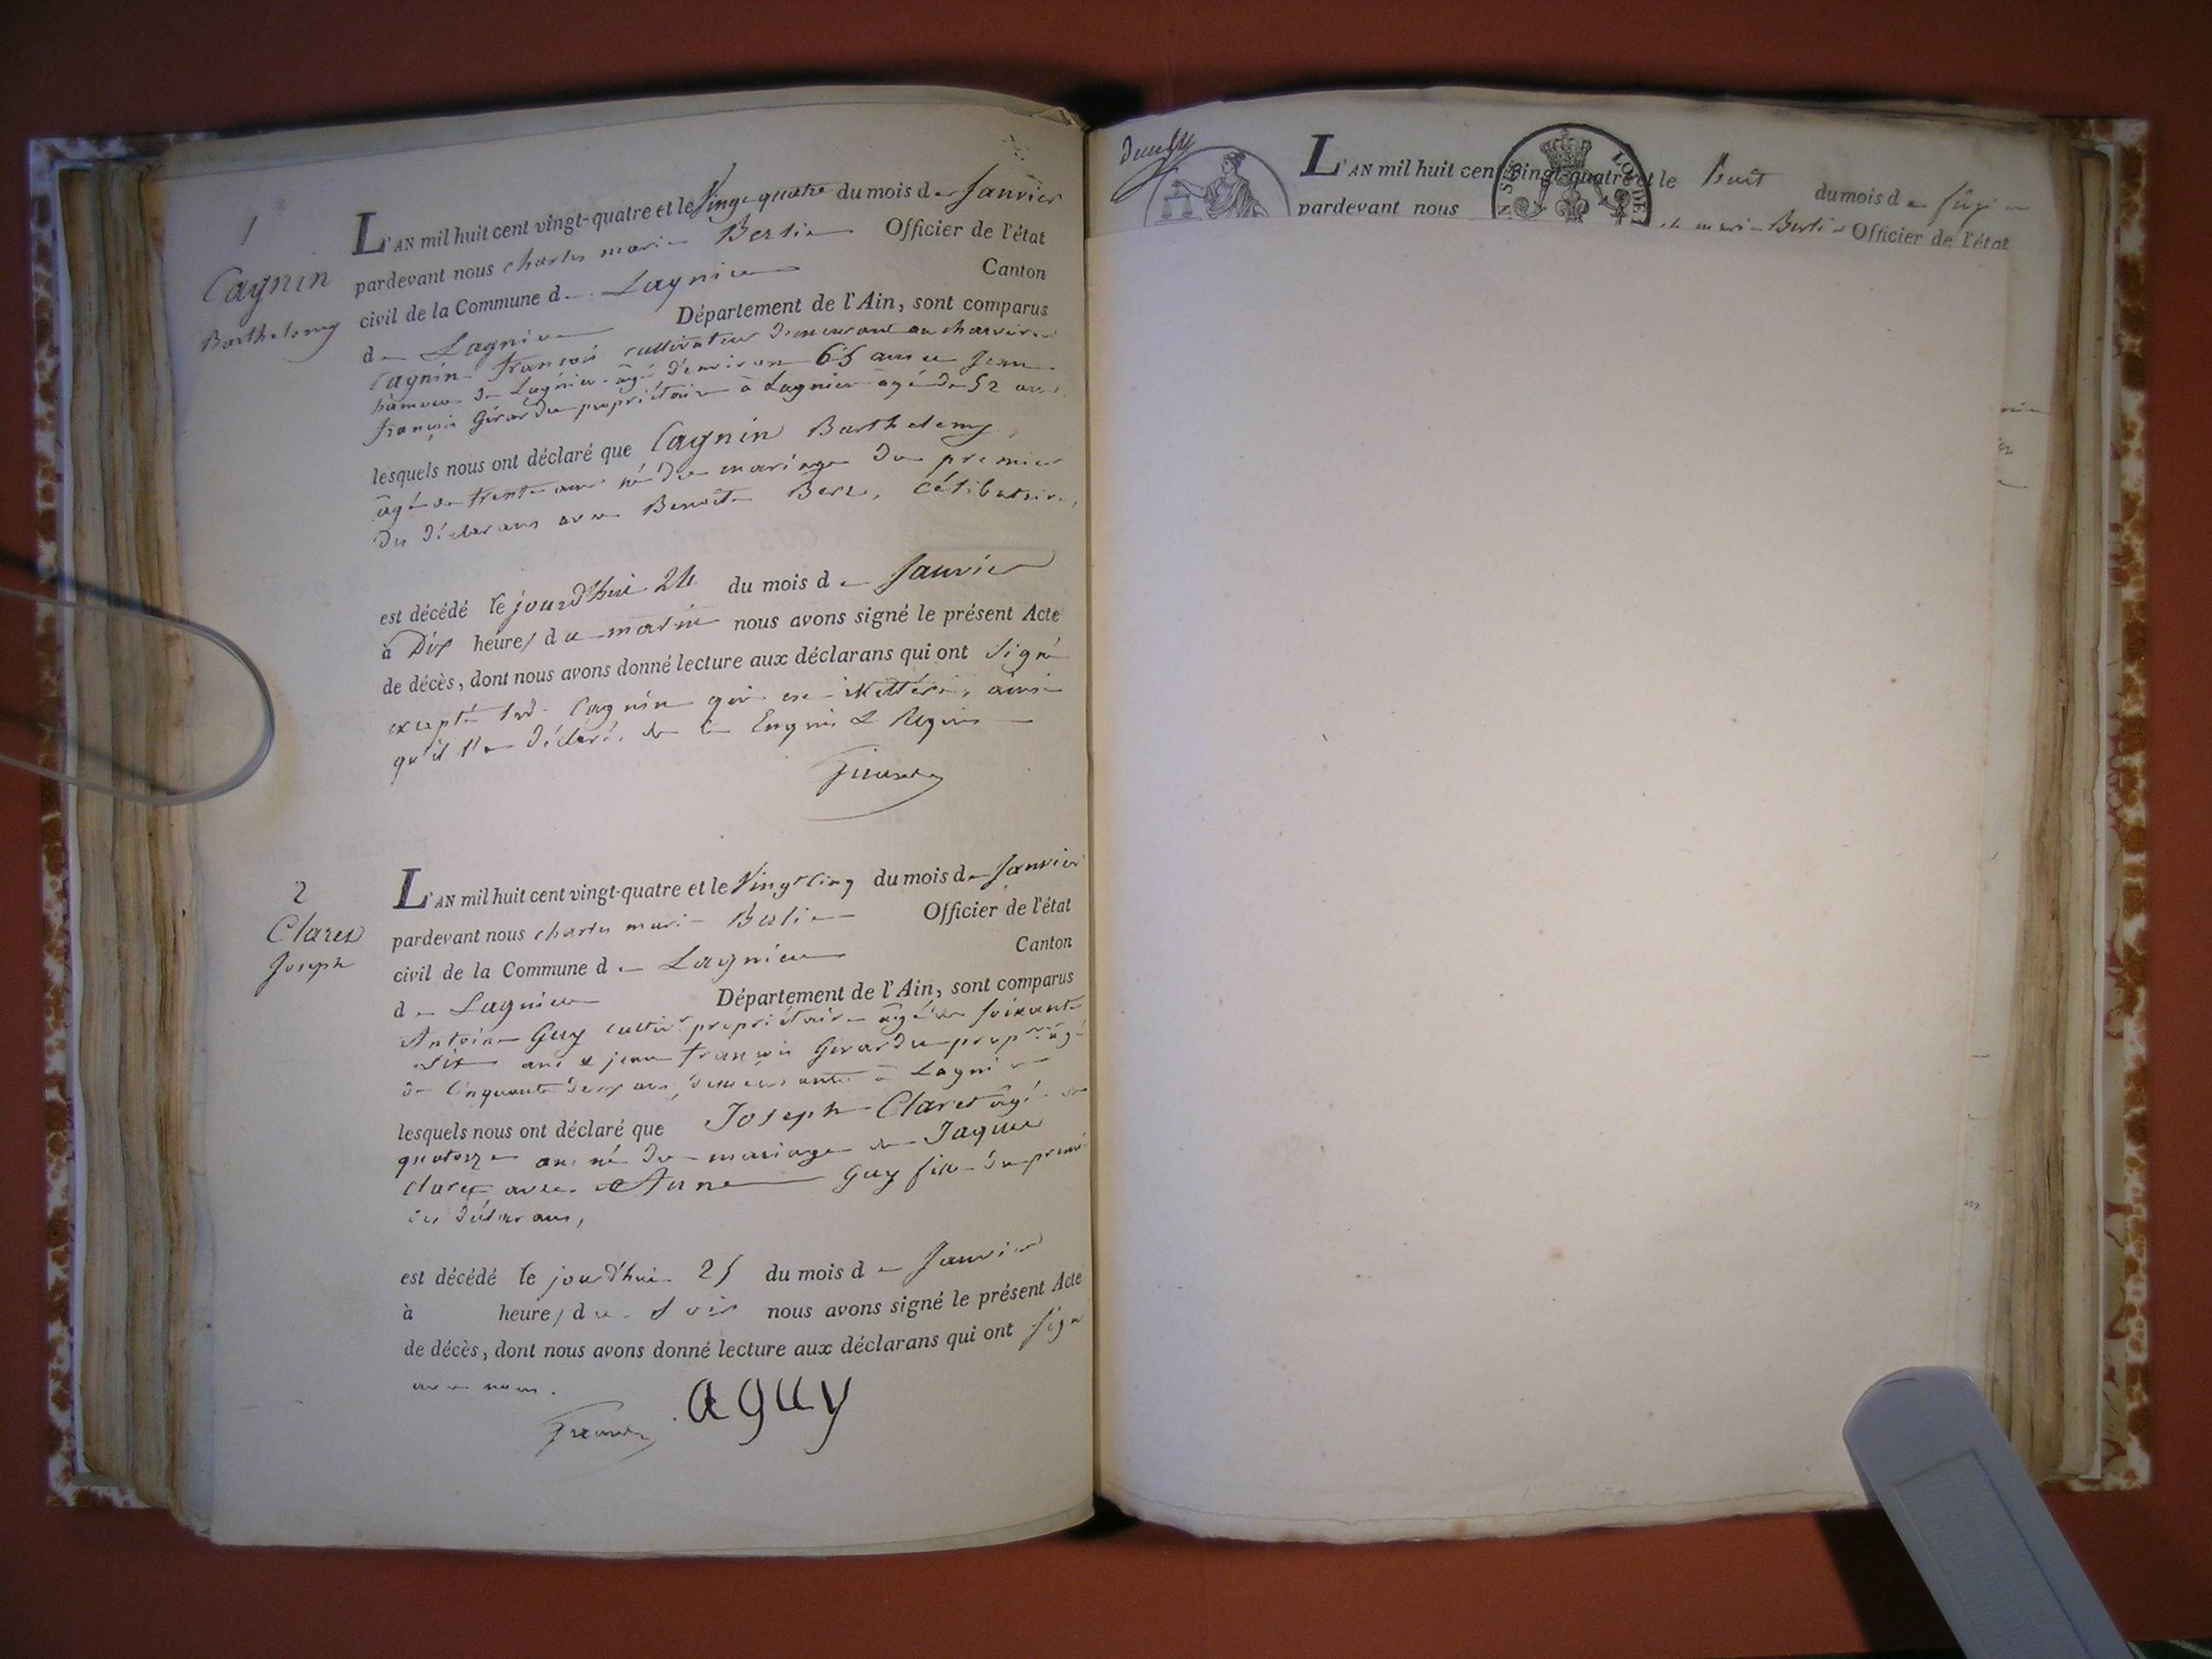 1
Cagnin
Barthelemy
L'AN mil huit cent vingt-quatre et le Vingt quatre du mois de Janvier
pardevant nous charles marie Berlie Officier de l'état
civil de la Commune de Lagnieu Canton
de Lagnieu Département de l'Ain, sont comparus
Cagnin François cultivateur demeurant au
hameau de Lagnieu âgé d'environ 65 ans et Jean
françois Girardu propriétaire à Lagnieu âgé de 52 ans
lesquels nous ont déclaré que Cagnin Barthelemy,
âgé de trente ans né du mariage du premier
des déclarans avec Benoite, Célibataire,
est décédé le jourd'hui 24 du mois de Janvier
à Dix heures du matin nous avons signé le présent Acte
de décès, dont nous avons donné lecture aux déclarans qui ont signé
excepté led. Cagnin qui est illettéré, ainsi
qu'il l'a déclaré, de ce Enquis & Requis
2
Claret
Joseph
L'AN mil huit cent vingt-quatre et le Vingt cinq du mois de Janvier
pardevant nous charles marie Berlie Officier de l'état
civil de la Commune de Lagnieu Canton
de Lagnieu Département de l'Ain, sont comparus
Antoine Guy cultivr propriétaire âgé de soixante
six ans & jean françois Girardu propre âgé
de Cinquante deux ans, demeurants à Lagnieu
lesquels nous ont déclaré que Joseph Claret âgé de
quatorze ans né du mariage de Jaques
Claret avec Anne Guy fille du premier
des déclarans,
est décédé le jourd'hui 25 du mois de Janvier
à heures du soir nous avons signé le présent Acte
de décès, dont nous avons donné lecture aux déclarans qui ont signé
avec nous.
aguy
L'AN mil huit cent vingt-quatre et le huit du mois de
pardevant nous marie Berlie Officier de l'état